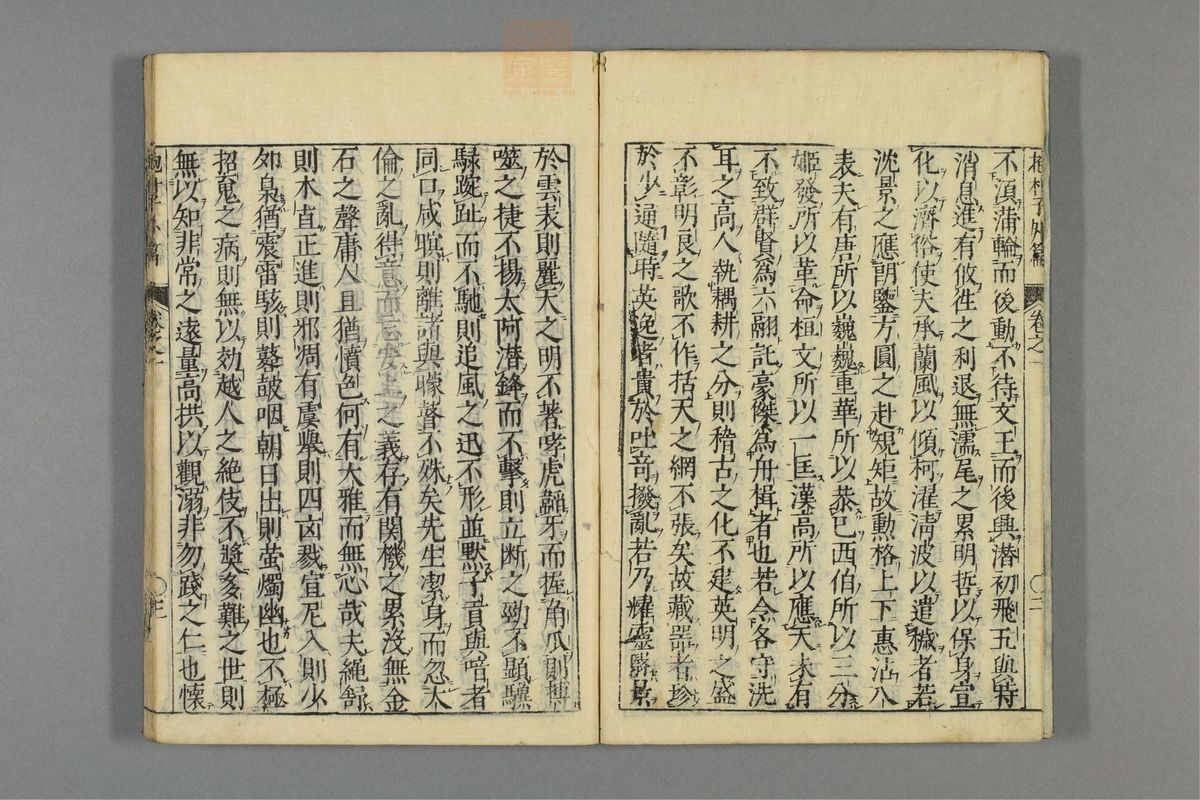 抱朴子外篇 卷之一 〇二
不湏蒲輪而後動不待文王而後興潜初飛五與時
消息進有攸往之利退無濡尾之累明哲以保身宣
化以濟俗使夫承蘭風以傾柯濯清波以遣穢者若
沈景之應朗鑒方圓之赴規矩故勲格上下惠沾八
表夫有唐所以巍巍重華所以恭巳西伯所以三分
姬發所以革命桓文所以一匡漢高所以應天未有
不致群賢為六翮託豪傑為舟楫者也若令各守洗
耳之高人執耦耕之分則稽古之化不建英明之盛
不彰明良之歌不作括天之網不張矣故藏噐者珍
於少通隨時英逸者貴於吐竒撥亂若乃耀靈翳景
於雲表則麗天之明不著哮虎韜牙而握角爪則搏
噬之捷不揚太阿潜鋒而不擊則立断之勁不顯驥
騄踠趾而不馳則追風之迅不形並黙子貢與喑者
同口咸瞑則離諸與矇瞽不殊矣先生潔身而忽大
倫之亂得意而忘安上之義存有関機之累没無金
石之聲庸人且猶憤色何有大雅而無心哉夫繩舒
則木直正進則邪凋有虞舉則四凶戮宣尼入則少
夘梟猶震雷駭則鼛鼓咽朝日出則萤燭幽也不極
招䰟之病則無以効越人之絶伎不奬多難之世則
無以知非常之遠量高拱以觀溺非勿踐之仁也懐
抱朴子外篇 卷之一 〇三